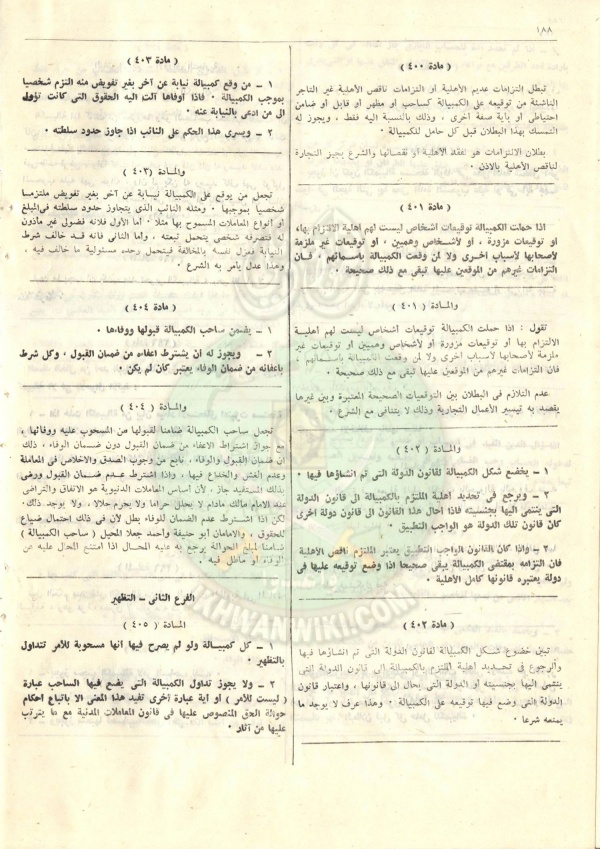 ١٨٨
( مادة ٤٠٠ )
تبطل التزامات عديم الأهلية أو التزامات ناقص الأهلية غير التاجر
الناشئة من توقيعه على الكمبيالة كساحب أو مظهر أو قابل أو ضامن
احتياطى أو بأية صفة أخرى ، وذلك بالنسبة اليه فقط ، ويجوز له
التمسك بهذا البطلان قبل كل حامل للكمبيالة ٠
بطلان الالتزامات هو لفقد الأهلية أو نقصانها والشرع يجيز التجارة
لناقص الأهلية بالاذن ٠
( مادة ٤٠١ )
اذا حملت الكمبيالة توقيعات أشخاص ليست لهم أهلية الالتزام بها،
أو توقيعات مزورة ، أو لأشخاص وهميين ، أو توقيعات غير ملزمة
لأصحابها لأسباب أخرى ولا لمن وقعت الكمبيالة بأسمائهم ، فان
التزامات غيرهم من الموقعين عليها تبقى مع ذلك صحيحة ٠
والمادة ( ٤٠١ )
تقول : اذا حملت الكمبيالة توقيعات أشخاص ليست لهم أهلية
الالتزام بها أو توقيعات مزورة أو لأشخاص وهميين أو توقيعات غير
ملزمة لأصحابها لأسباب أخرى ولا لمن وقعت الكمبيالة بأسمائهم ،
فان التزامات غيرهم من الموقعين عليها تبقى مع ذلك صحيحة ٠
عدم التلازم فى البطلان بين التوقيعات الصحيحة المعتبرة وبين غيرها
يقصد به تيسير الأعمال التجارية وذلك لا يتنافى مع الشرع ٠
والمادة ( ٤٠٢ )
١ ــ يخضع شكل الكمبيالة لقانون الدولة التى تم انشاؤها فيها ٠
٢ ــ ويرجع فى تحديد أهلية الملتزم بالكمبيالة الى قانون الدولة
التى ينتمى اليها بجنسيته فاذا أحال هذا القانون الى قانون دولة أخرى
كان قانون تلك الدولة هو الواجب التطبيق ٠
٣ ــ واذا كان القانون الواجب التطبيق يعتبر الملتزم ناقص الأهلية
فان التزامه بمقتضى الكمبيالة يبقى صحيحا اذا وضع توقيعه عليها فى
دولة يعتبره قانونها كامل الأهلية ٠
( مادة ٤٠٢ )
تبين خضوع شكل الكمبيالة لقانون الدولة التى تم انشاؤها فيها
والرجوع فى تحديد أهلية الملتزم بالكمبيالة الى قانون الدولة التى
ينتمى اليها بجنسيته أو الدولة التى يحال الى قانونها ، واعتبار قانون
الدولة التى وضع فيها توقيعه على الكمبيالة ٠ وهذا عرف لا يوجد ما
يمنعه شرعا ٠
( مادة ٤٠٣ )
١ ــ من وقع كمبيالة نيابة عن آخر بغير تفويض منه التزم شخصيا
بموجب الكمبيالة ٠ فاذا أوفاها آلت اليه الحقوق التى كانت تؤول
الى من ادعى بالنيابة عنه ٠
٢ ــ ويسرى هذا الحكم على النائب اذا جاوز حدود سلطته ٠
والمادة (٤٠٣)
تجعل من يوقع على الكمبيالة نيابة عن آخر بغير تفويض ملتزما
شخصيا بموجبها ٠ ومثله النائب الذى يتجاوز حدود سلطته فى المبلغ
أو أنواع المعاملات المسموح بها مثلا ٠ أما الأول فلأنه فضولى غير مأذون
له فتصرفه شخصى يتحمل تبعته ، وأما الثانى فانه قد خالف شرط
النيابة فعزل نفسه بالمخالفة فيتحمل وحده مسئولية ما خالف فيه ٠
وهذا عدل يأمر به الشرع ٠
( مادة ٤٠٤ )
١ ــ يضمن صاحب الكمبيالة قبولها ووفاءها ٠
٢ ــ ويجوز له ان يشترط اعفاءه من ضمان القبول ، وكل شرط
باعفائه من ضمان الوفاء يعتبر كأن لم يكن ٠
والمادة ( ٤٠٤ )
تجعل صاحب الكمبيالة ضامنا لقبولها من المسحوب عليه ووفائها ،
مع جواز اشتراط الاعفاء من ضمان القبول دون ضمان الوفاء ، ذلك
ان ضمان القبول والوفاء ، نابع من وجوب الصدق والاخلاص فى المعاملة
وعدم الغش والخداع فيها ، واذا اشترط عدم ضمان القبول ورضى
بذلك المستفيد جاز ، لأن أساس المعاملات الدنيوية هو الاتفاق والتراضى
عند الامام مالك مادام لا يحلل حراما ولا يحرم حلالا ٠ ولا يوجد ذلك ٠
لكن اذا اشترط عدم الضمان للوفاء بطل لأن فى ذلك احتمال ضياع
للحقوق ٠ والامامان أبو حنيفة وأحمد جعلا المحيل ( ساحب الكمبيالة )
ضامنا لمبلغ الحوالة يرجع به عليه المحال اذا امتنع المحال عليه عن
الوفاء أو ماطل فيه ٠
الفرع الثانى ــ التظهير
المادة ( ٤٠٥ )
١ ــ كل كمبيالة ولو لم يصرح فيها أنها مسحوبة للأمر تتداول
بالتظهير ٠
٢ ــ ولا يجوز تداول الكمبيالة التى يضع فيها الساحب عبارة
( ليست للأمر ) أو أية عبارة أخرى تفيد هذا المعنى الا باتباع أحكام
حوالة الحق المنصوص عليها فى قانون المعاملات المدنية مع ما يترتب
عليها من آثار ٠
IKHWANWIKI.COM